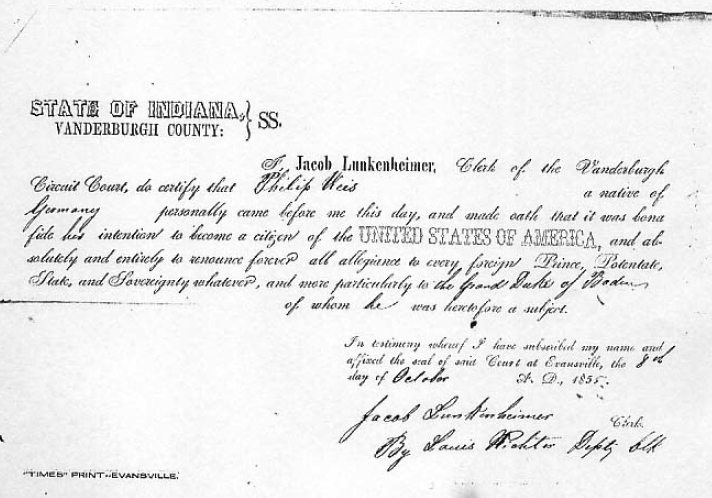 STATE OF INDIANA, } SS.
VANDERBURGH COUNTY:
I, Jacob Lunkenheimer, Clerk of the Vanderburgh
Circuit Court, do certify that Philip Weis a native of
Germany personally came before me this day, and made oath that it was bona
fide his intention to become a citizen of the UNITED STATES OF AMERICA, and ab-
solutely and entirely to renounce forever all allegiance to every foreign Prince, Potentate,
State, and Sovereignty whatever, and more particularly to the Grand Duke of Baden
of whom he was heretofore a subject.
In testimony whereof I have subscribed my name and
affixed the seal of said Court at Evansville, the 8th
day of October A. D., 1855.
Jacob Lunkenheimer Clerk.
By Louis Richter Depty Clk
"TIMES" PRINT--EVANSVILLE.